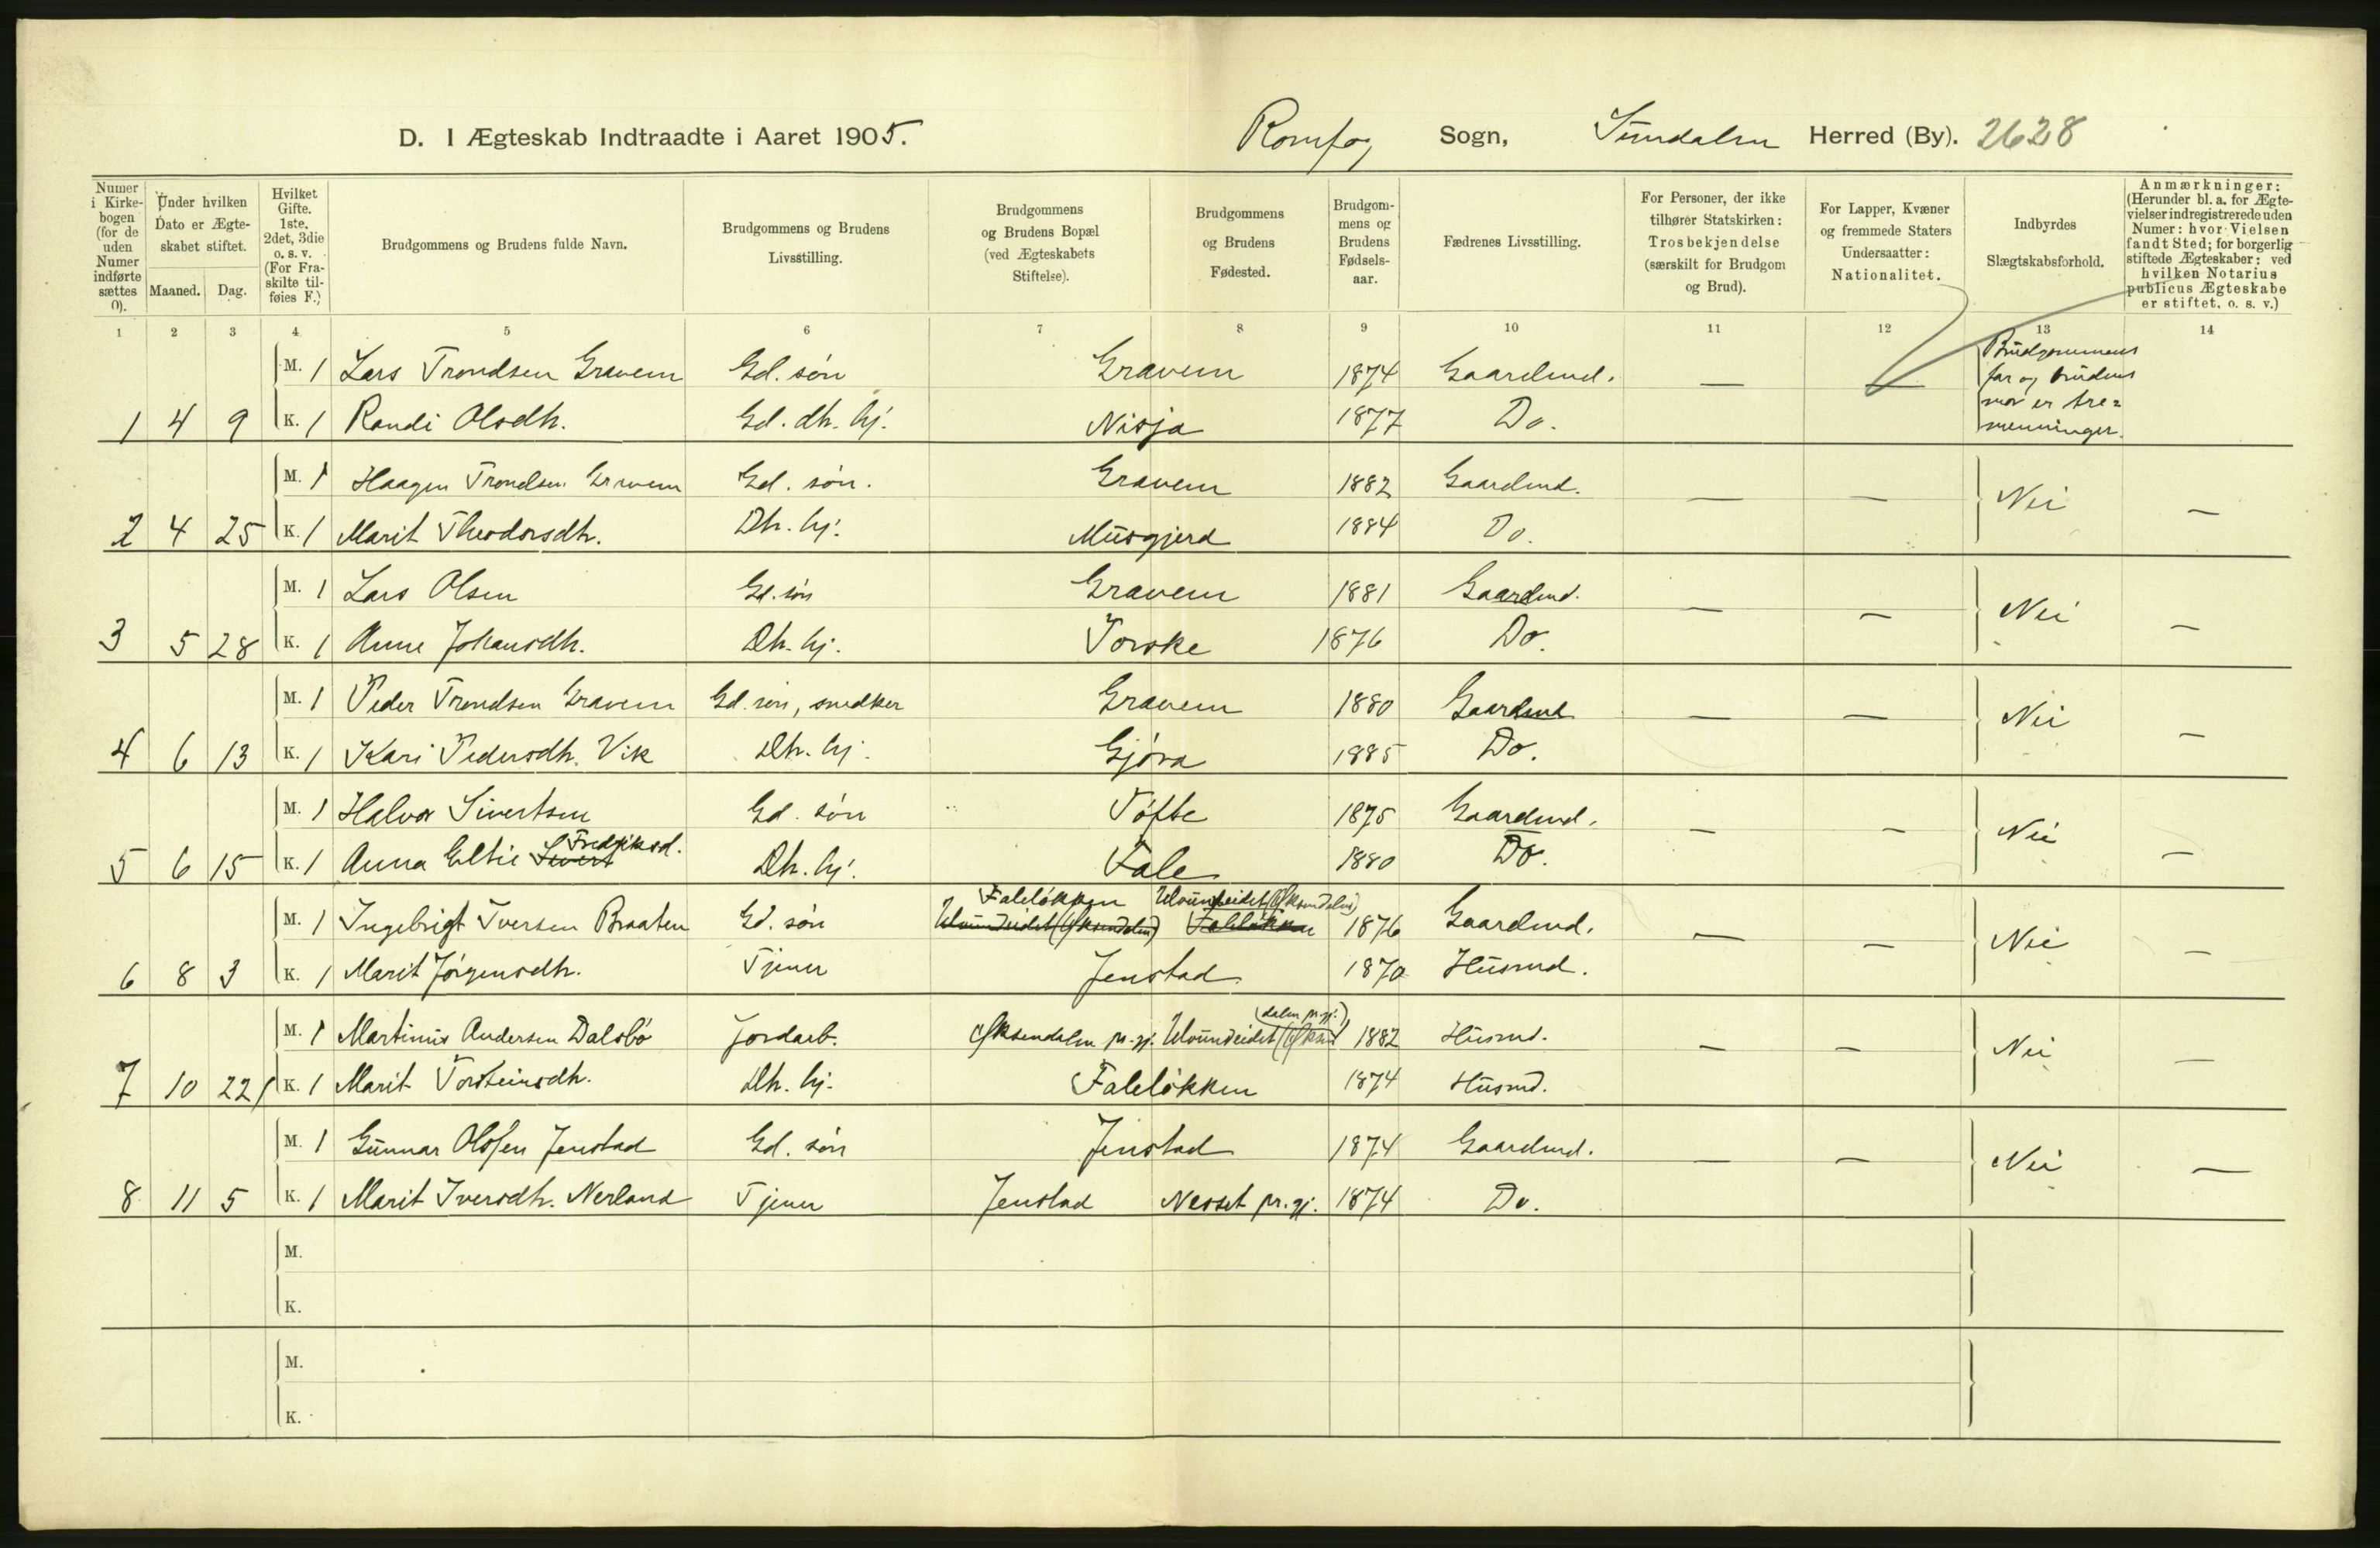 D. I Ægteskab Indtraadte i Aaret 1905. Romfog Sogn, Sundalen Herred (By). 2628
Numer i Kirkebogen (for de uden Numer indførte sættes 0).
Under hvilken Dato er Ægteskabet stiftet.
Maaned. Dag.
Hvilket Gifte. 1ste. 2det, 3die o. s. v. (For Fraskilte tilføies F.)
Brudgommens og Brudens fulde Navn.
Brudgommens og Brudens Livsstilling.
Brudgommens og Brudens Bopæl (ved Ægteskabets Stiftelse).
Brudgommens og Brudens Fødested.
Brudgommens og Brudens Fødselsaar.
Fædrenes Livsstilling.
For Personer, der ikke tilhører Statskirken: Trosbekjendelse (særskilt for Brudgom og Brud).
For Lapper, Kvæner og fremmede Staters Undersaatter: Nationalitet.
Indbyrdes Slægtskabsforhold.
Anmærkninger: (Herunder bl. a. for Ægtevielser indregistrerede uden Numer: hvor Vielsen fandt Sted; for borgerlig stiftede Ægteskaber: ved hvilken Notarius publicus Ægteskabet er stiftet, o. s. v.)
1 2 3 4 5 6 7 8 9 10 11 12 13 14
M. 1 Lars Trondsen Gravem Gd. søn Gravem 1874 Gaardmd. — — Brudgommens far og brudens mor er tremenninger.
1 4 9 K. 1 Randi Olsdh. Gd. dh. hj. Nisja 1877 Do.
M. 1 Haagen Trondsen Gravem Gd. søn. Gravem 1882 Gaardmd. — — Nei —
2 4 25 K. 1 Marit Theodorsdh. Dh. hj. Musgjerd 1884 Do.
M. 1 Lars Olsen Gd. søn Gravem 1881 Gaardmd. — — Nei —
3 5 28 K. 1 Anne Johansdh. Dh. hj. Torske 1876 Do.
M. 1 Peder Trondsen Gravem Gd. søn, snedker Gravem 1880 Gaardmd — — Nei —
4 6 13 K. 1 Kari Pedersdh. Vik Dh. hj. Gjøra 1885 Do.
M. 1 Halvor Sivertsen Gd. søn Tøfte 1875 Gaardmd. — — Nei —
5 6 15 K. 1 Anna Eltie Sivert Fredriksd. Dh. hj. Fale 1880 Do.
Faleløkken Ulvundeidet (Øksendalen)
M. 1 Ingebrigt Iversen Braaten Gd. søn Ulvundeidet (Øksendalen) Faleløkken 1876 Gaardmd. — — Nei —
6 8 3 K. 1 Marit Jørgensdh. Tjener Jenstad 1870 Husmd.
M. 1 Martinus Andersen Dalsbø Jordarb. Øksendalen pr.gj. Ulvundeidet (Øksendalen pr.gj.) 1882 Husmd. — — Nei —
7 10 22 K. 1 Marit Torsteinsdh. Dh. hj. Faleløkken 1874 Husmd.
M. 1 Gunnar Olsen Jenstad Gd. søn Jenstad 1874 Gaardmd. — — Nei —
8 11 5 K. 1 Marit Iversdh. Nerland Tjener Jenstad Nesset pr.gj. 1874 Do.
M.
K.
M.
K.